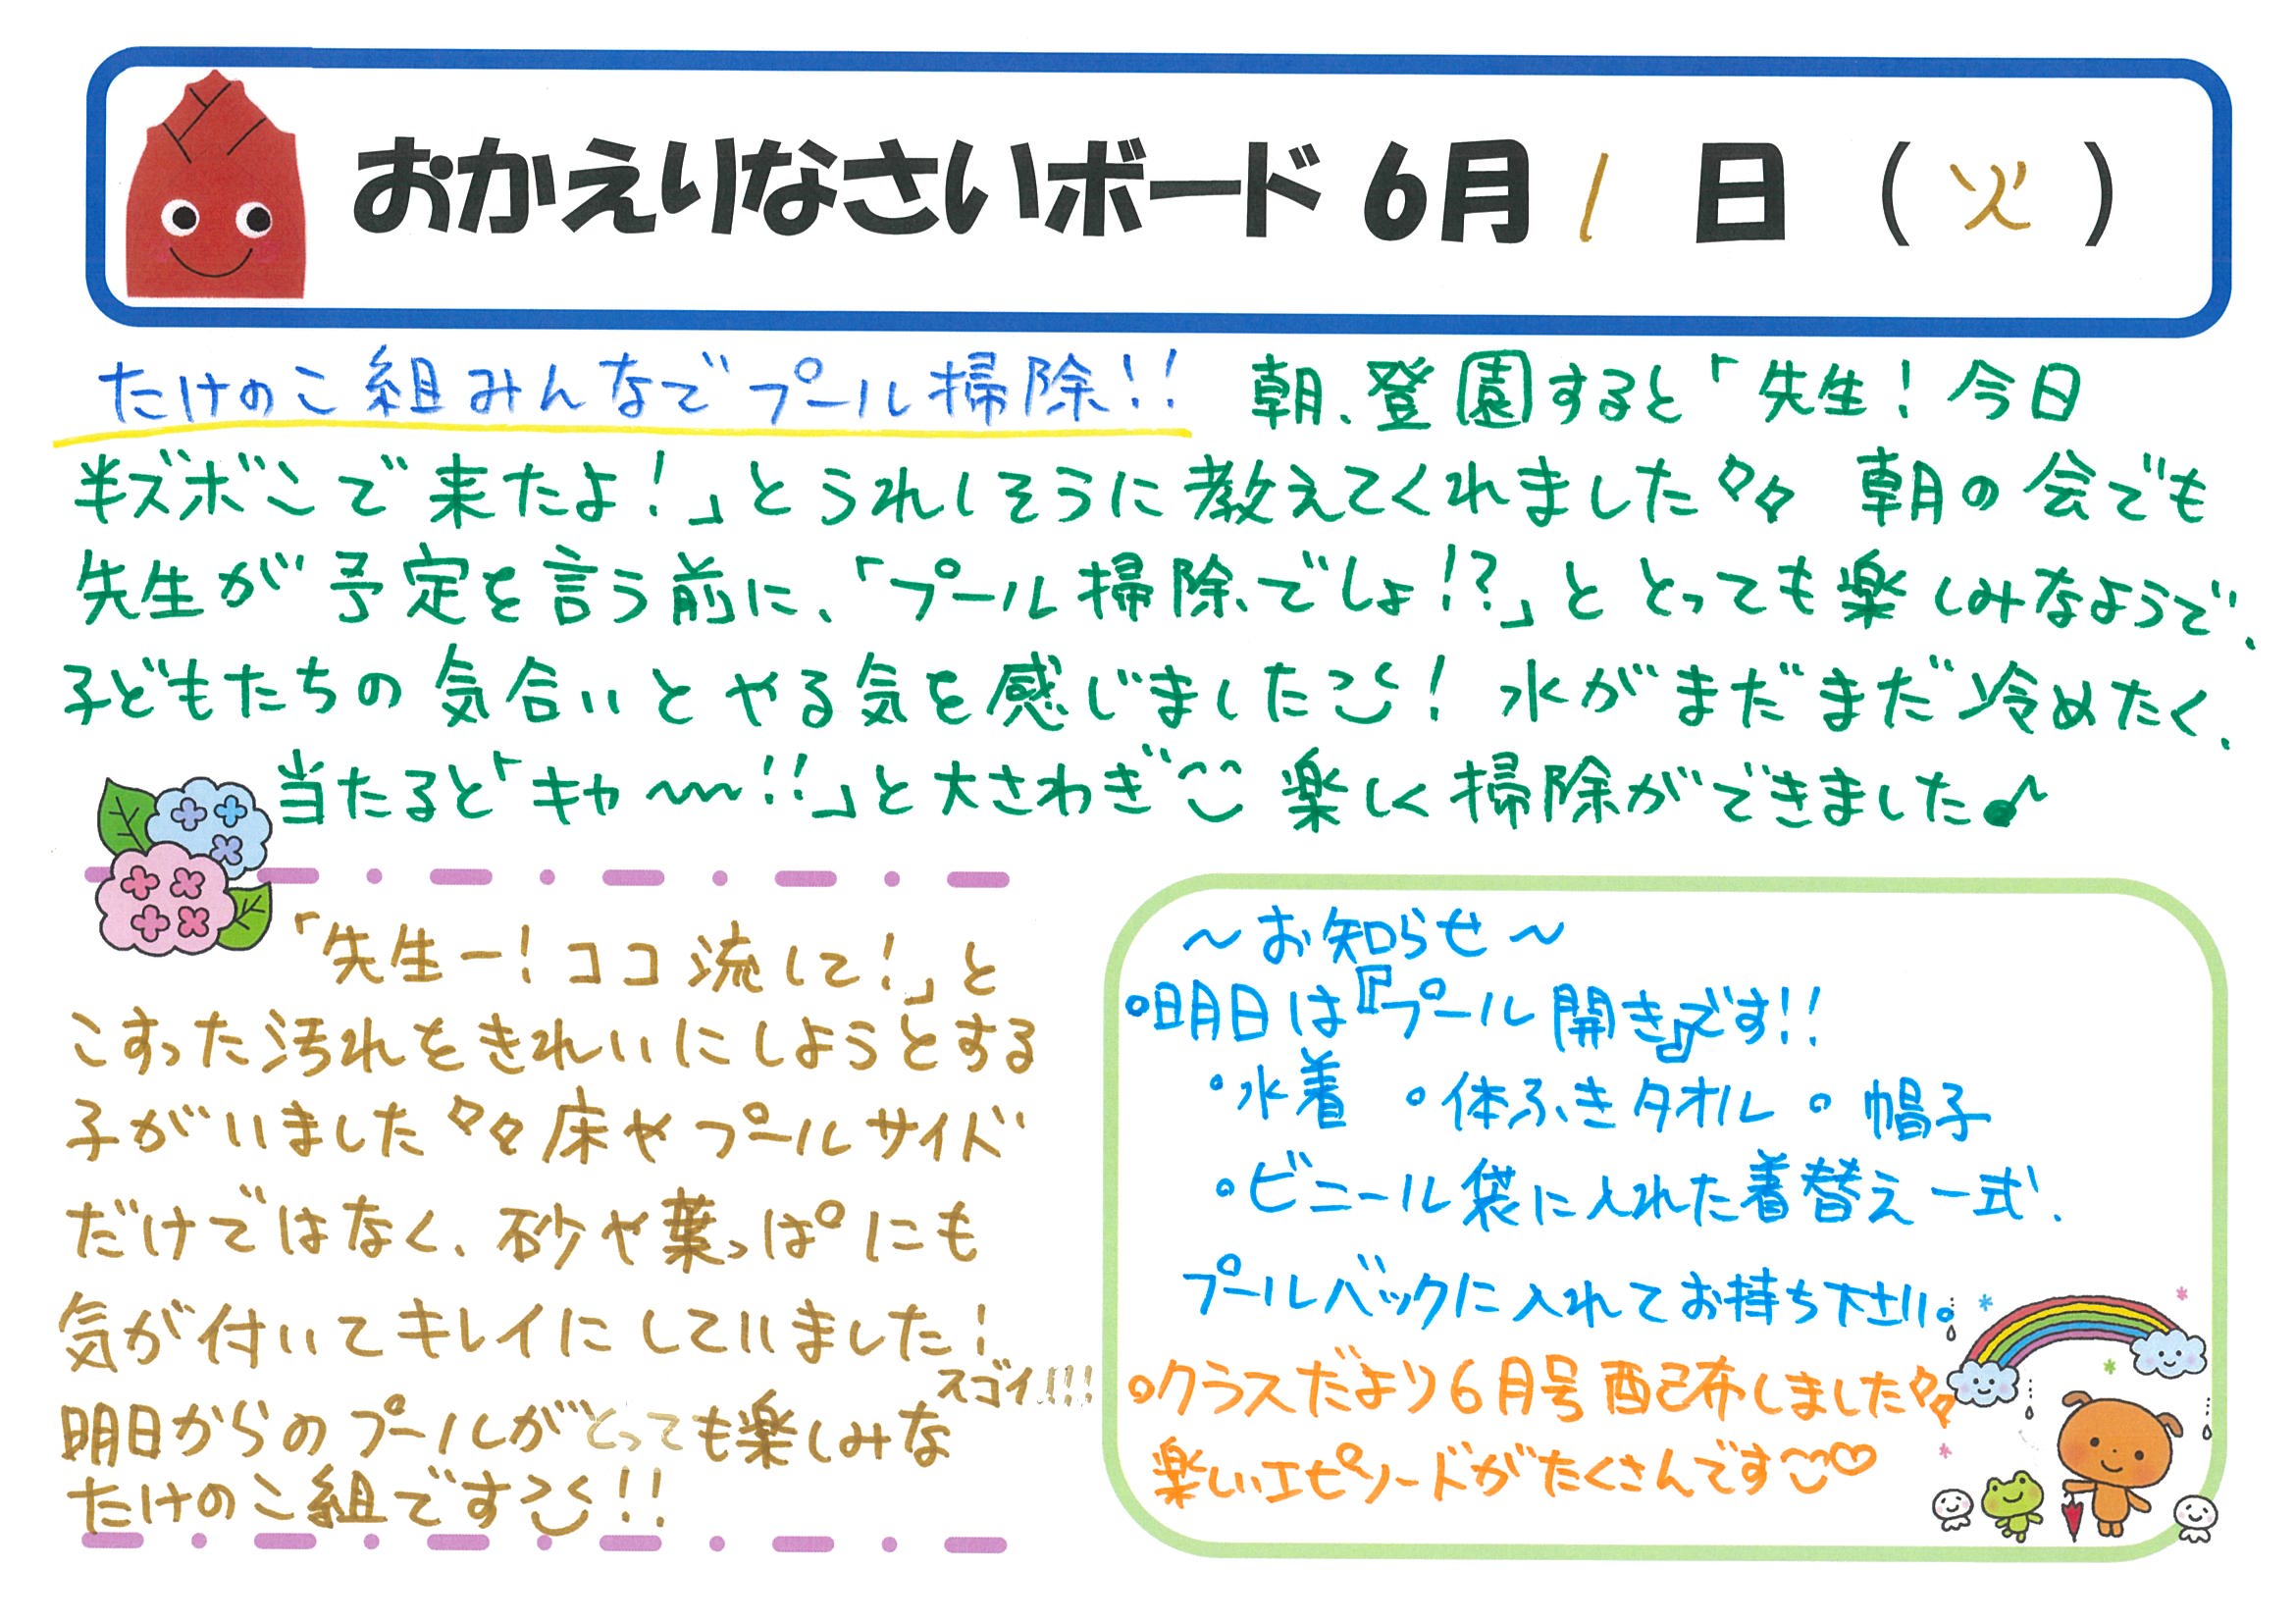 おかえりなさいボード 6月 1 日 ( 火 )
たけのこ組みんなでプール掃除!! 朝、登園すると「先生!今日
半ズボンで来たよ!」とうれしそうに教えてくれました 朝の会でも
先生が予定を言う前に、「プール掃除でしょ!?」ととっても楽しみなようで、
子どもたちの気合いとやる気を感じました! 水がまだまだ冷めたく、
当たると「キャ〜!!」と大さわぎ 楽しく掃除ができました♪
「先生ー!ココ流して!」と
こすった汚れをきれいにしようとする
子がいました 床やプールサイド
だけではなく、砂や葉っぱにも
気が付いてキレイにしていました!
スゴイ!!!
明日からのプールがとっても楽しみな
たけのこ組です!!
〜お知らせ〜
○明日は『プール開き』です!!
○水着 ○体ふきタオル ○帽子
○ビニール袋に入れた着替え一式、
プールバックに入れてお持ち下さい。
○クラスだより6月号配布しました
楽しいエピソードがたくさんです♡